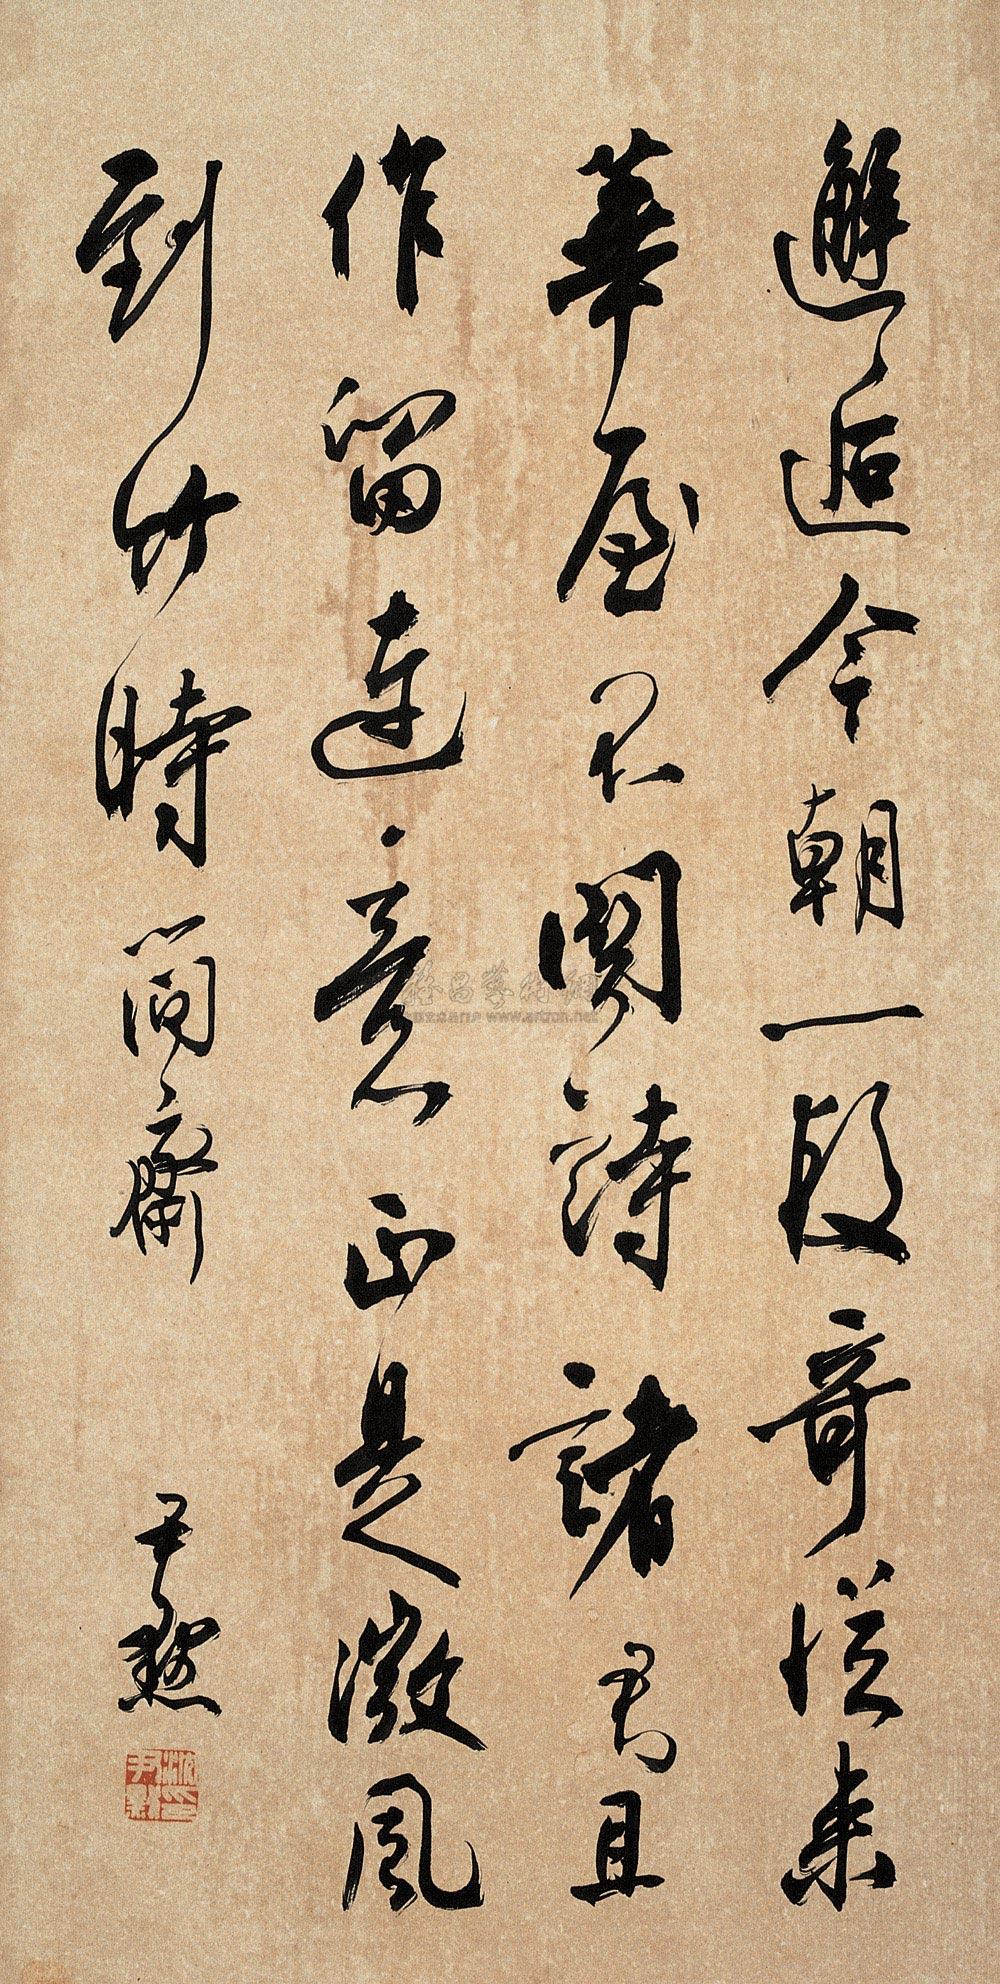 邂逅今朝一段奇從来
華屋不關詩諸君且
作留連意正是微風
到竹時簡齋
尹默
沈尹默
www.artron.net